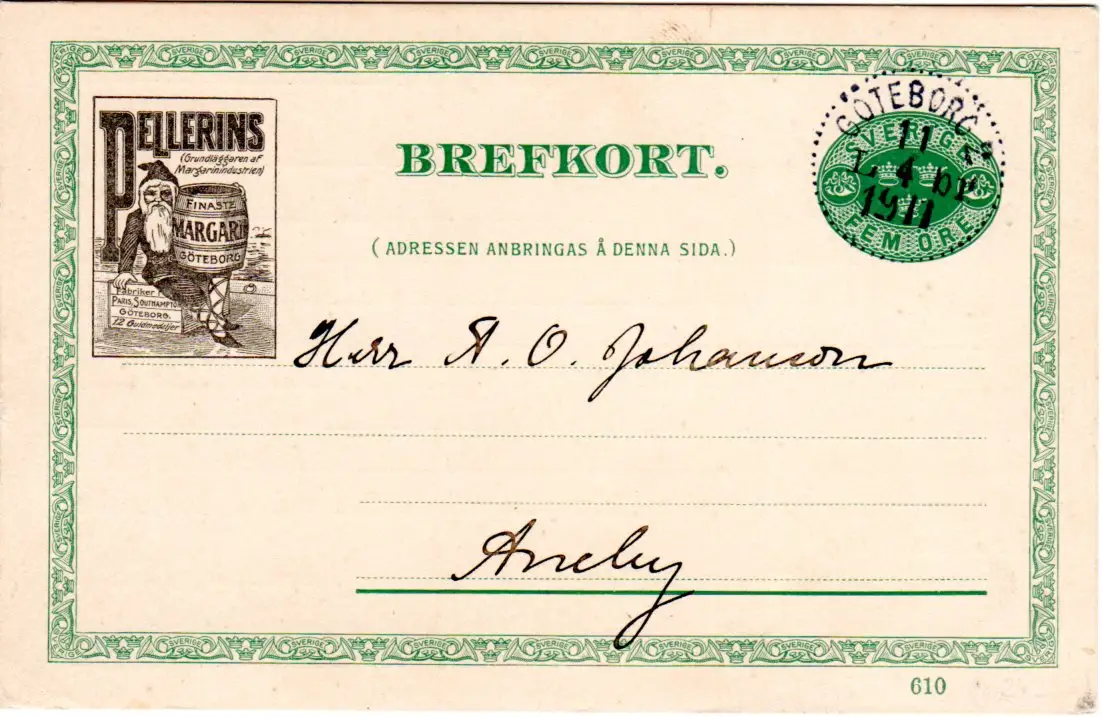 PELLERINS
(Grundläggaren af
Margarinindustrien)
FINASTE
MARGARIN
GÖTEBORG
Fabriker i
PARIS, SOUTHAMPTON
GÖTEBORG.
12 Guldmedaljer
BREFKORT.
(ADRESSEN ANBRINGAS Å DENNA SIDA.)
GÖTEBORG
11
4
1911
SVERIGE
FEM ÖRE
Herr A. O. Johanson
Aneby
610